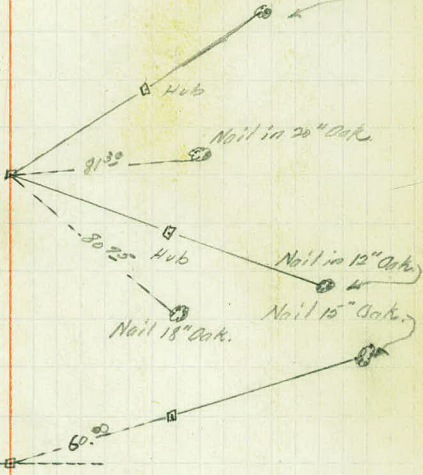 Hub
Nail in 20" Oak.
81.30
80.95
Hub
Nail in 12" Oak.
Nail 15" Oak.
Nail 18" Oak.
60.00